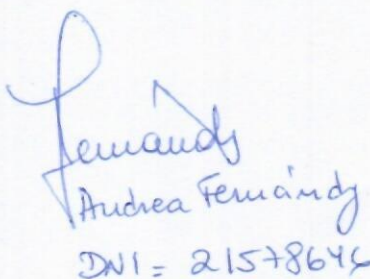 Fernández
Andrea Fernández
DNI = 21578646